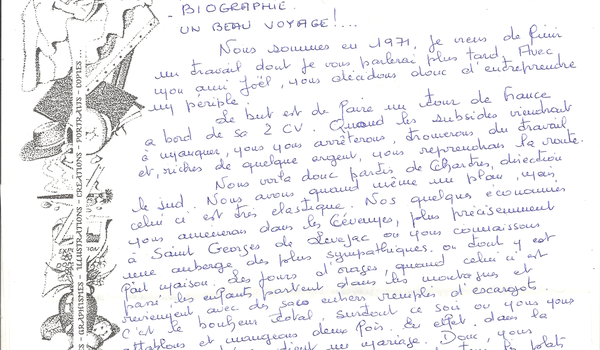 - BIOGRAPHIE.
UN BEAU VOYAGE !...
Nous sommes en 1971, je viens de finir
un travail dont je vous parlerai plus tard. Avec
mon ami Joël, nous décidons donc d'entreprendre
un périple.
Le but est de faire un tour de France
a bord de sa 2 CV. Quand les subsides viendront
à manquer, nous nous arrêterons, trouverons du travail
et, riches de quelque argent, nous reprendrons la route.
Nous voila donc partis de Chartres, direction
le sud. Nous avons quand même un plan, mais
celui ci est très élastique. Nos quelques économies
nous amenerons dans les Cévennes, plus précisemment
à Saint Georges de Levejac ou nous connaissons
une auberge des plus sympathiques, ou tout y est
fait maison. Les jours d'orages, quand celui ci est
passé les enfants partent dans les montagnes et
reviennent avec des sacs entiers remplis d'escargots.
C'est le bonheur total, surtout ce soir ou nous nous
attablons et mangeons deux fois. En effet, dans la
un mariage. Donc, nous
GRAPHISMES - ILLUSTRATIONS - CREATIONS - PORTRAITS - COPIES ...